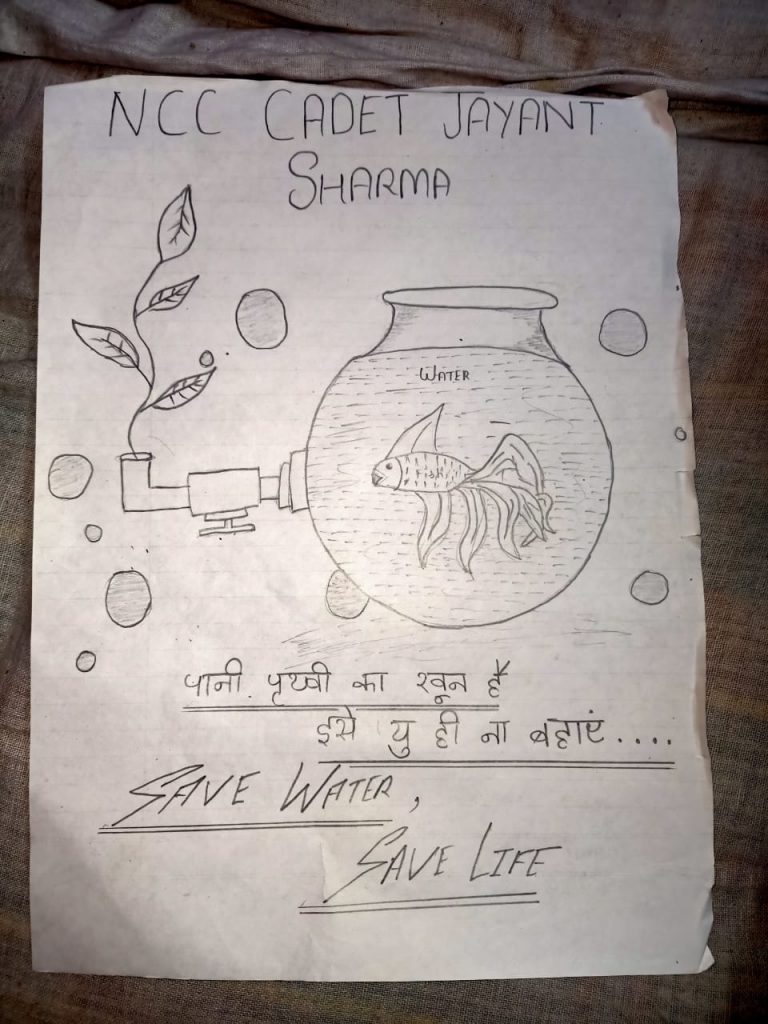 NCC CADET JAYANT
SHARMA
WATER
FISH
पानी पृथ्वी का खून है
इसे यु ही ना बहाएं....
SAVE WATER,
SAVE LIFE